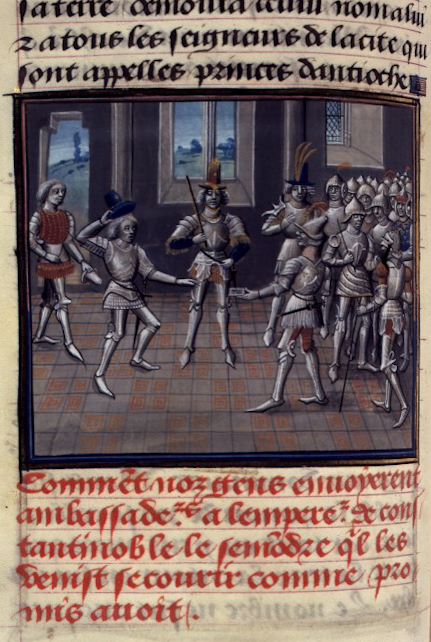 sa terre demoura celui nom a lui
⁊ a tous les seigneurs de la cite qui
sont appelles princes dantioche
Comment noz gens enuoyerent
ambassade a lempere de cons
tantinoble le semodre ql les
venist secourir comme pro
mis auoit .